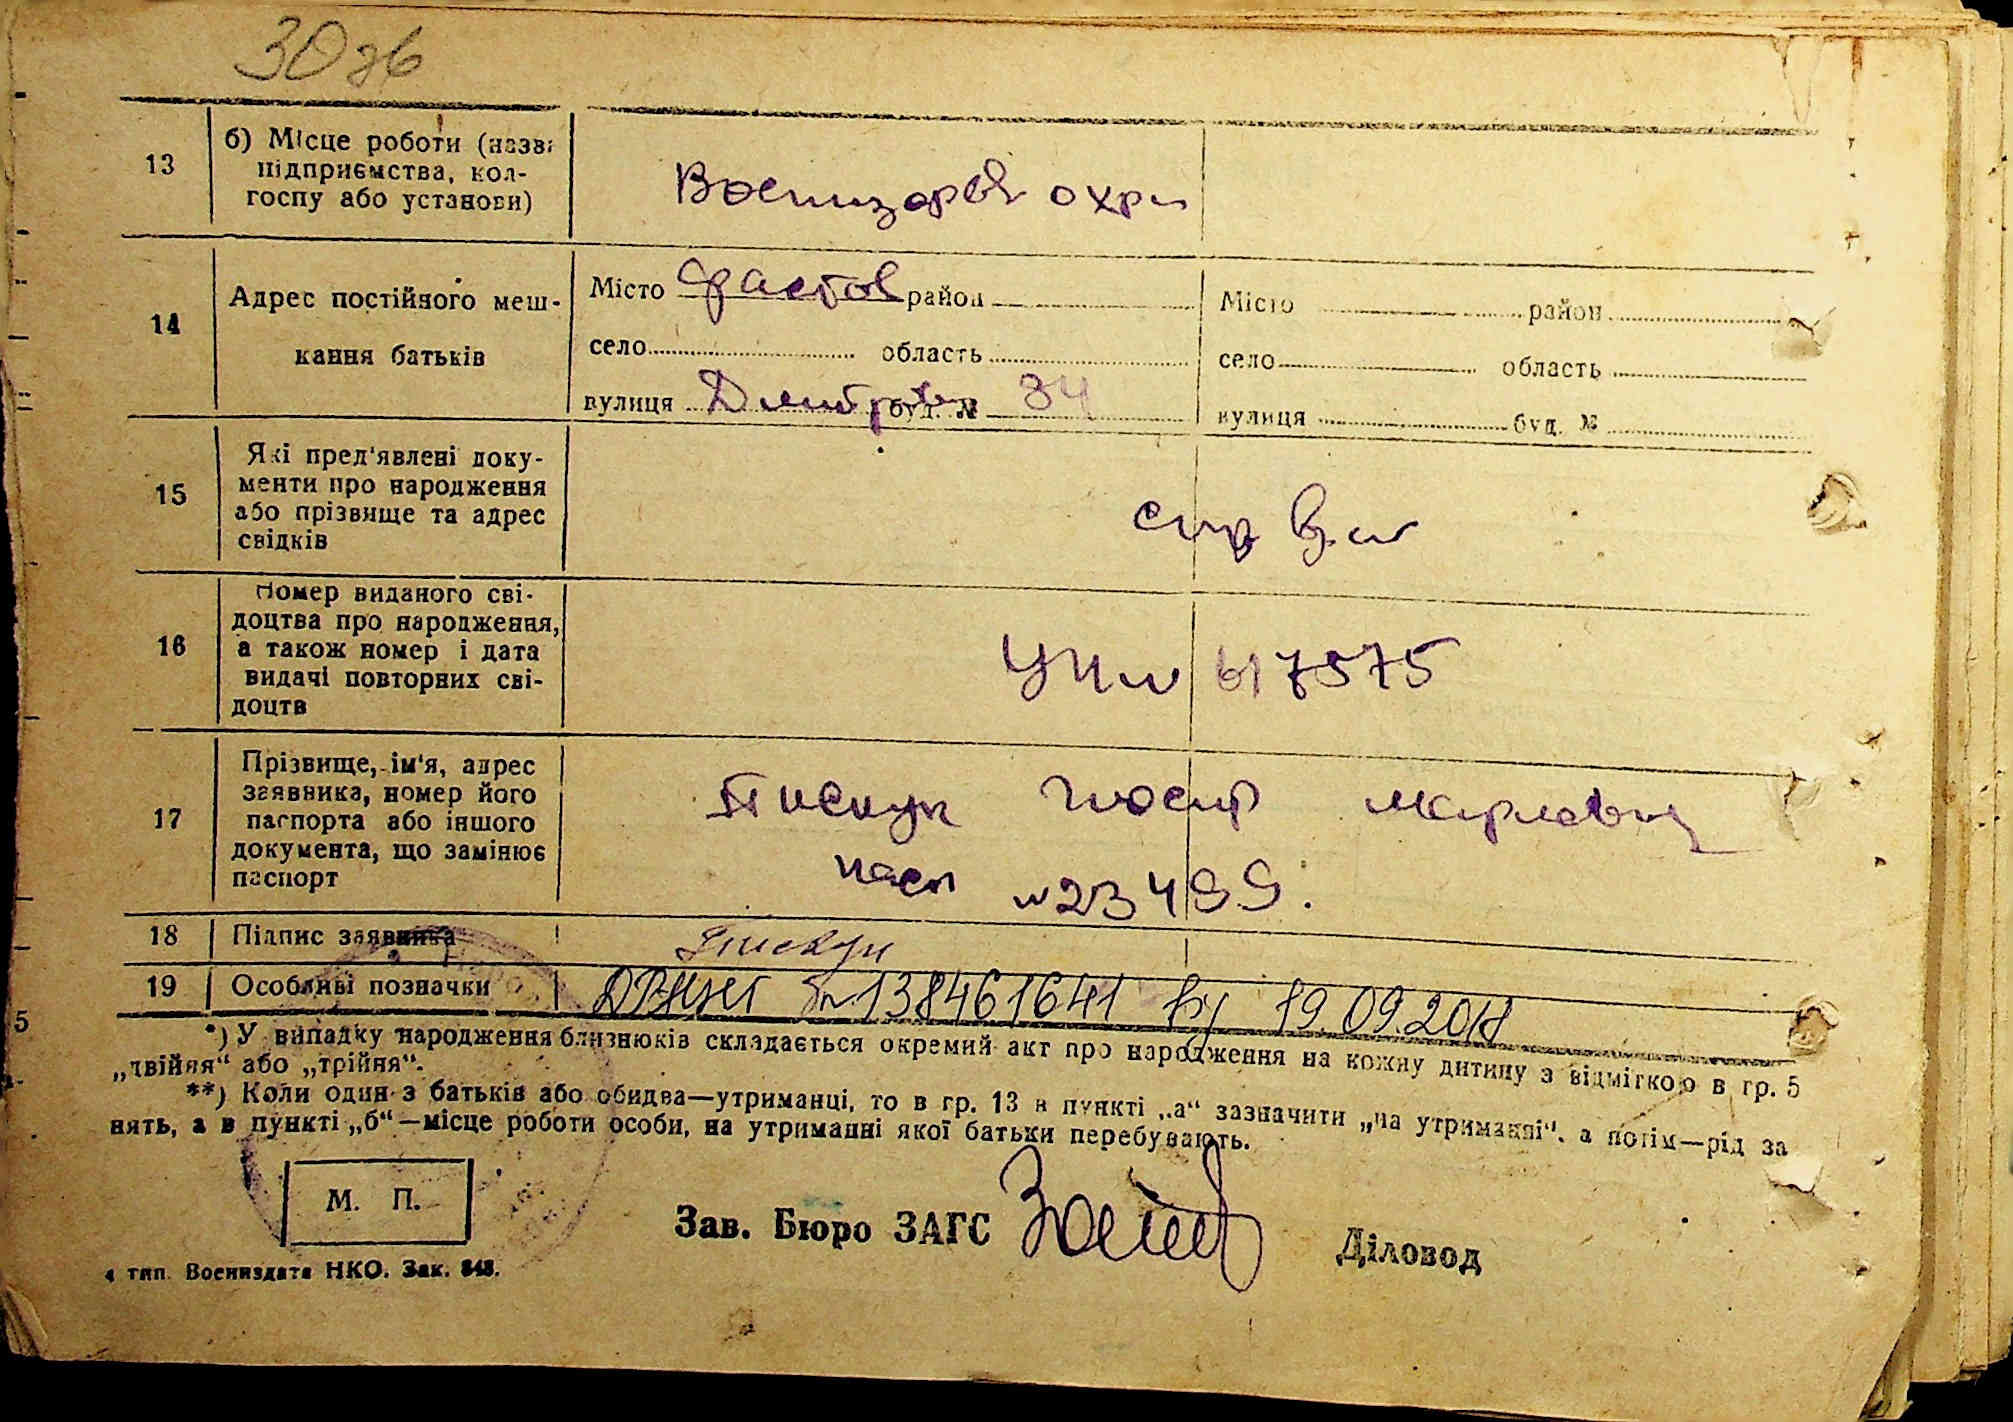 30 зв
13
б) Місце роботи (назва
підприємства, кол-
госпу або установи)
охр
14
Адрес постійного меш-
кання батьків
Місто Фастов район
село область
вулиця буд. № 34
Місто район
село область
вулиця буд. №
15
Які пред'явлені доку-
менти про народження
або прізвище та адрес
свідків
16
Номер виданого сві-
доцтва про народження,
а також номер і дата
видачі повторних сві-
доцтв
17
Прізвище, ім'я, адрес
заявника, номер його
паспорта або іншого
документа, що замінює
паспорт
Пискун
пасп № 23499.
18
Підпис заявника
Пискун
19
Особливі позначки
138461641 19.09.2018
*) У випадку народження близнюків складається окремий акт про народження на кожну дитину з відміткою в гр. 5
„двійня“ або „трійня“.
**) Коли один з батьків або обидва—утриманці, то в гр. 13 в пункті „а“ зазначити „на утриманні“, а потім—рід за
нять, а в пункті „б“—місце роботи особи, на утриманні якої батьки перебувають.
М. П.
Зав. Бюро ЗАГС
Діловод
4 тип. Воениздата НКО. Зак. 848.
5